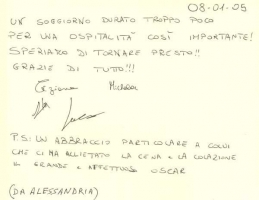 08-01-05
UN SOGGIORNO DURATO TROPPO POCO
PER UNA OSPITALITÀ COSÌ IMPORTANTE!
SPERIAMO DI TORNARE PRESTO!!
GRAZIE DI TUTTO!!!
P.S: UN ABBRACCIO PARTICOLARE A COLUI
CHE CI HA ALLIETATO LA CENA E LA COLAZIONE
IL GRANDE E AFFETTUOSO OSCAR
(DA ALESSANDRIA)